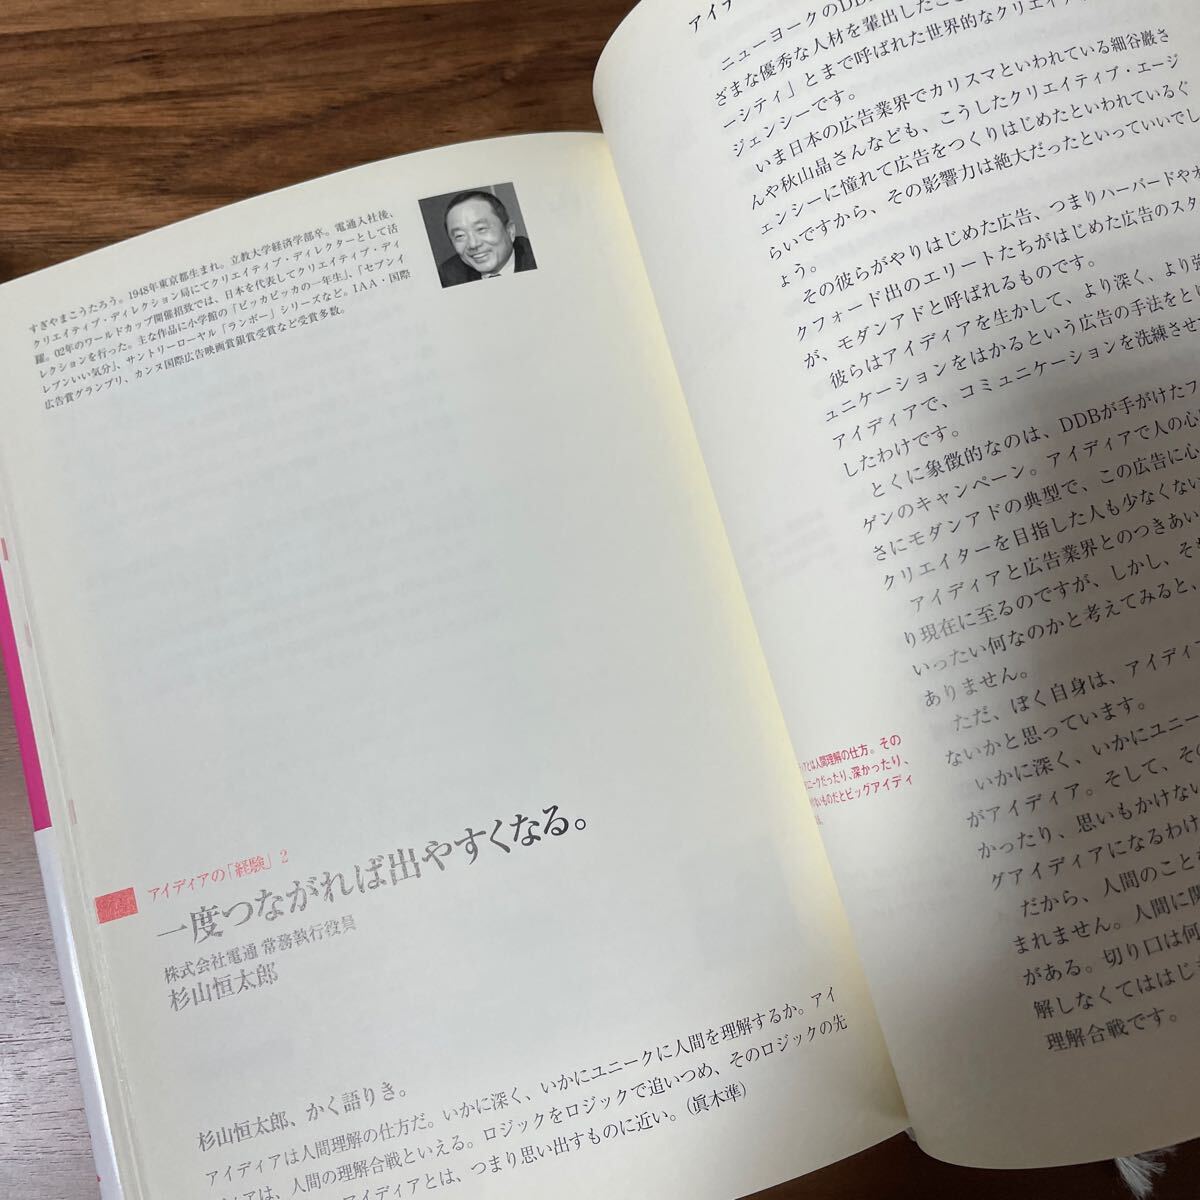 すぎやまこうたろう。1948年東京都生まれ。立教大学経済学部卒。電通入社後、
クリエイティブ・ディレクション局にてクリエイティブ・ディレクターとして活
躍。02年のワールドカップ開催招致では、日本を代表してクリエイティブ・ディ
レクションを行った。主な作品に小学館の「ピッカピカの一年生」、「セブンイ
レブンいい気分」、サントリーローヤル「ランボー」シリーズなど。IAA・国際
広告賞グランプリ、カンヌ国際広告映画賞銀賞受賞など受賞多数。
アイディアの「経験」2
一度つながれば出やすくなる。
株式会社電通 常務執行役員
杉山恒太郎
杉山恒太郎、かく語りき。
アイディアは人間理解の仕方だ。いかに深く、いかにユニークに人間を理解するか。アイ
は、人間の理解合戦といえる。ロジックをロジックで追いつめ、そのロジックの先
アイディアとは、つまり思い出すものに近い。(眞木準)
ニューヨークのDDB
ざまな優秀な人材を輩出したこ
ーシティ」とまで呼ばれた世界的なクリエイ
ジェンシーです。
いま日本の広告業界でカリスマといわれている細谷巖さ
んや秋山晶さんなども、こうしたクリエイティブ・エージ
ェンシーに憧れて広告をつくりはじめたといわれているぐ
らいですから、その影響力は絶大だったといっていいでし
ょう。
その彼らがやりはじめた広告、つまりハーバードやオ
クフォード出のエリートたちがはじめた広告のスタ
が、モダンアドと呼ばれるものです。
彼らはアイディアを生かして、より深く、より強
ュニケーションをはかるという広告の手法をとり
アイディアで、コミュニケーションを洗練させ
したわけです。
とくに象徴的なのは、DDBが手がけたフ
ゲンのキャンペーン。アイディアで人の心
さにモダンアドの典型で、この広告に心
クリエイターを目指した人も少なくない
アイディアと広告業界とのつきあい
り現在に至るのですが、しかし、そ
いったい何なのかと考えてみると、
ありません。
ただ、ぼく自身は、アイディ
ないかと思っています。
いかに深く、いかにユニー
がアイディア。そして、その
かったり、思いもかけない
グアイディアになるわけ
だから、人間のこと
まれません。人間に関
がある。切り口は何
解しなくてははじ
理解合戦です。
とは人間理解の仕方。その
ニークだったり、深かったり、
ないものだとビッグアイディ